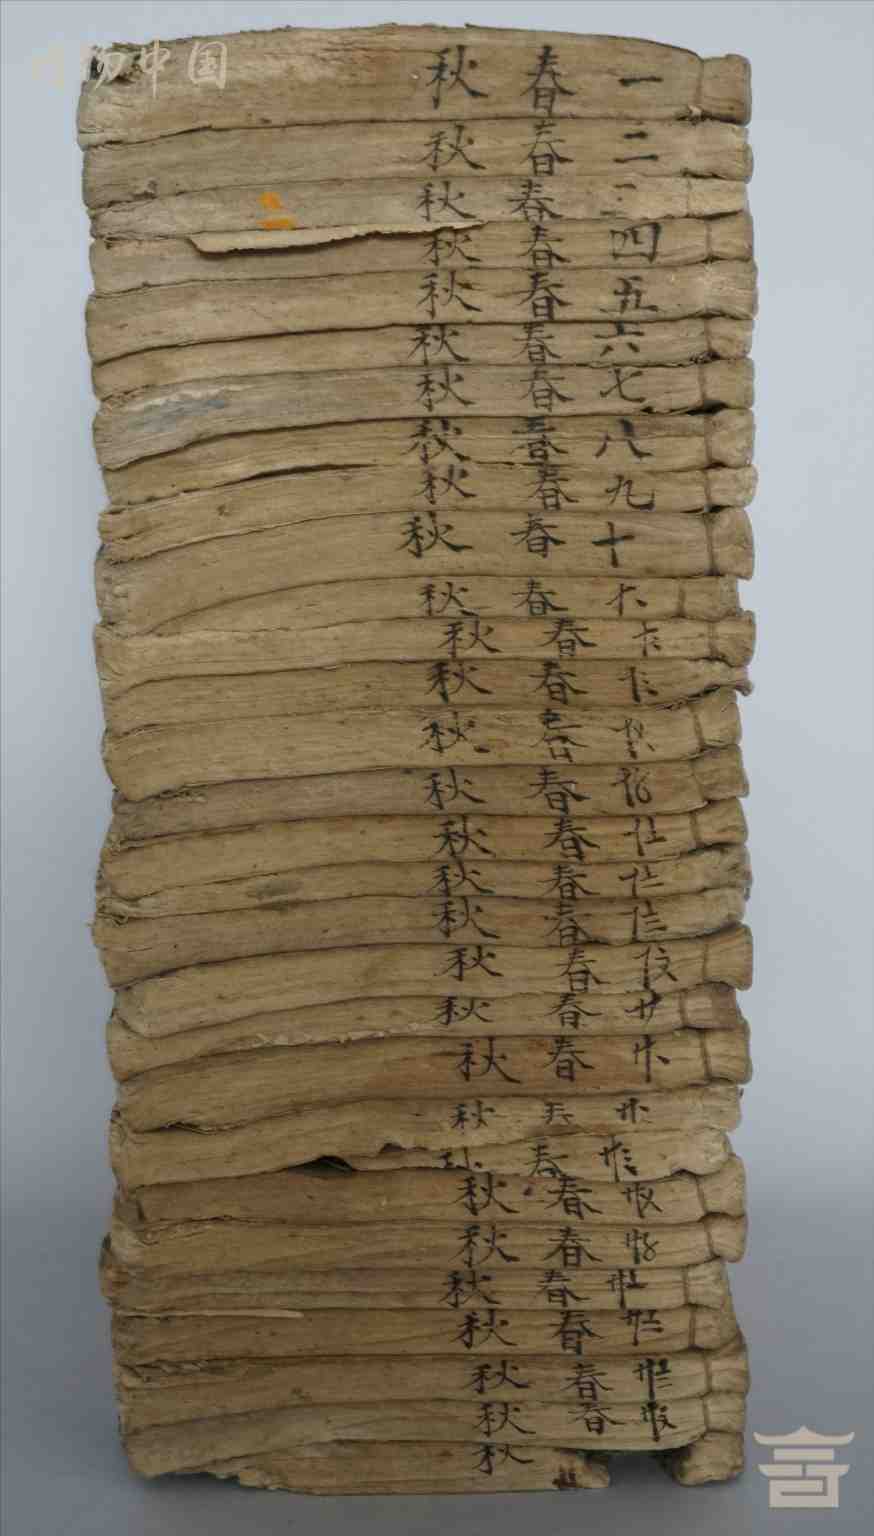 中国
一春秋
二春秋
春秋
四春秋
五春秋
六春秋
七春秋
八春秋
九春秋
十春秋
春秋
春秋
春秋
春秋
春秋
春秋
春秋
春秋
春秋
廿春秋
春秋
秋
春
春秋
春秋
春秋
春秋
春秋
春秋
秋